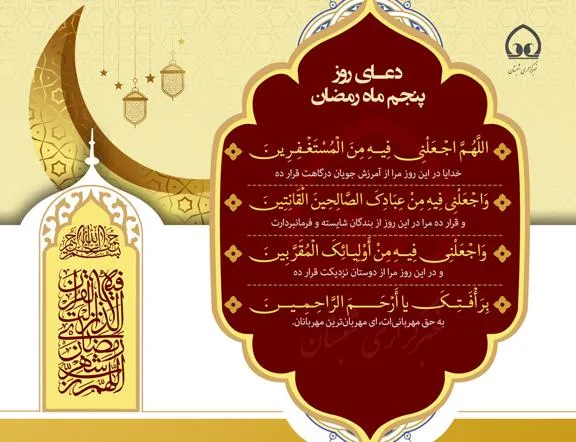 خبرگزاری شبستان
دعـای روز
پنجم ماه رمضان
اللَّهُمَّ اجْعَلْنِی فِیهِ مِنَ الْمُسْتَغْفِرِینَ
خدایا در این روز مرا از آمرزش جویان درگاهت قرار ده
وَاجْعَلْنِی فِیهِ مِنْ عِبَادِکَ الصَّالِحِینَ الْقَانِتِینَ
و قرار ده مرا در این روز از بندگان شایسته و فرمانبردارت
وَاجْعَلْنِی فِیهِ مِنْ أَوْلِیَائِکَ الْمُقَرَّبِینَ
و در این روز مرا از دوستان نزدیکت قرار ده
بِرَأْفَتِکَ یا أَرْحَمَ الرَّاحِمِینَ
به حق مهربانی‌ات، ای مهربان‌ترین مهربانان.
خبرگزاری شبستان
بسم الله الرحمن الرحیم
اللهم رب شهر
رمضان الذی
انزلت فیه القرآن